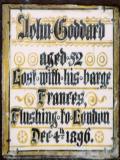 John Goddard
aged 52
Lost with his barge
Frances,
Flushing to London
Dec 4th 1896.